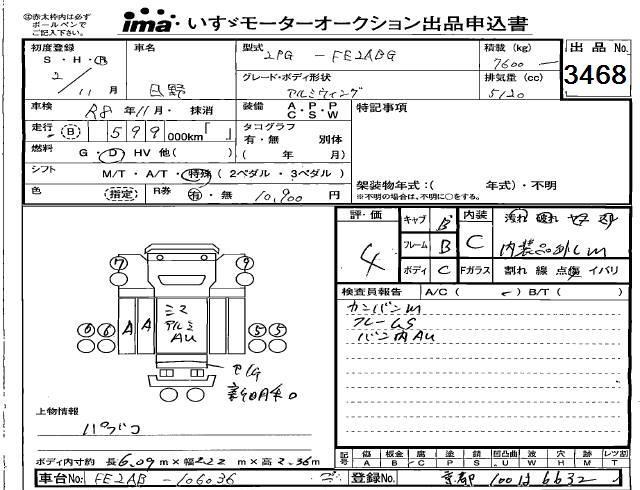 ㊟赤太枠内は必ず
ボールペンで
ご記入下さい。
ima いすゞモーターオークション出品申込書
初度登録
S・H・R
2/11月
車名
日野
型式
2PG-FE2ABG
グレード・ボディ形状
アルミウィング
積載 (kg)
7600
排気量 (cc)
5120
出品 No.
3468
車検
R8年11月・抹消
装備
A・P・P
C・S・W
特記事項
走行
B
599
000km「 」
タコグラフ
有・無 別体
( 年 月)
燃料
G・D・HV 他( )
シフト
M/T・A/T・特殊 (2ペダル・3ペダル)
架装物年式:( 年式)・不明
※不明の場合は、不明に○をする。
色
(指定)
R券
有・無 10,900 円
評・価
4
キャブ B
フレーム B
ボディ C
内装
C
汚れ 破れ
内装品外しm
Fガラス
割れ 線 点傷 イバリ
7
9
6 6
A A
ミミ
アルミ
AU
5 5
P/G
検査員報告
A/C ( ) B/T ( )
カンバンm
フレームS
バン内AU
上物情報
パブコ
ボディ内寸約 長6.09m×幅2.22m×高2.36m
記号
傷 A
板金 B
腐 C
塗 P
錆 S
凹凸曲 U
波 W
穴 H
跡 M
レツ割 T
車台No. FE2AB-106036
登録No. 京都 100 は 6632